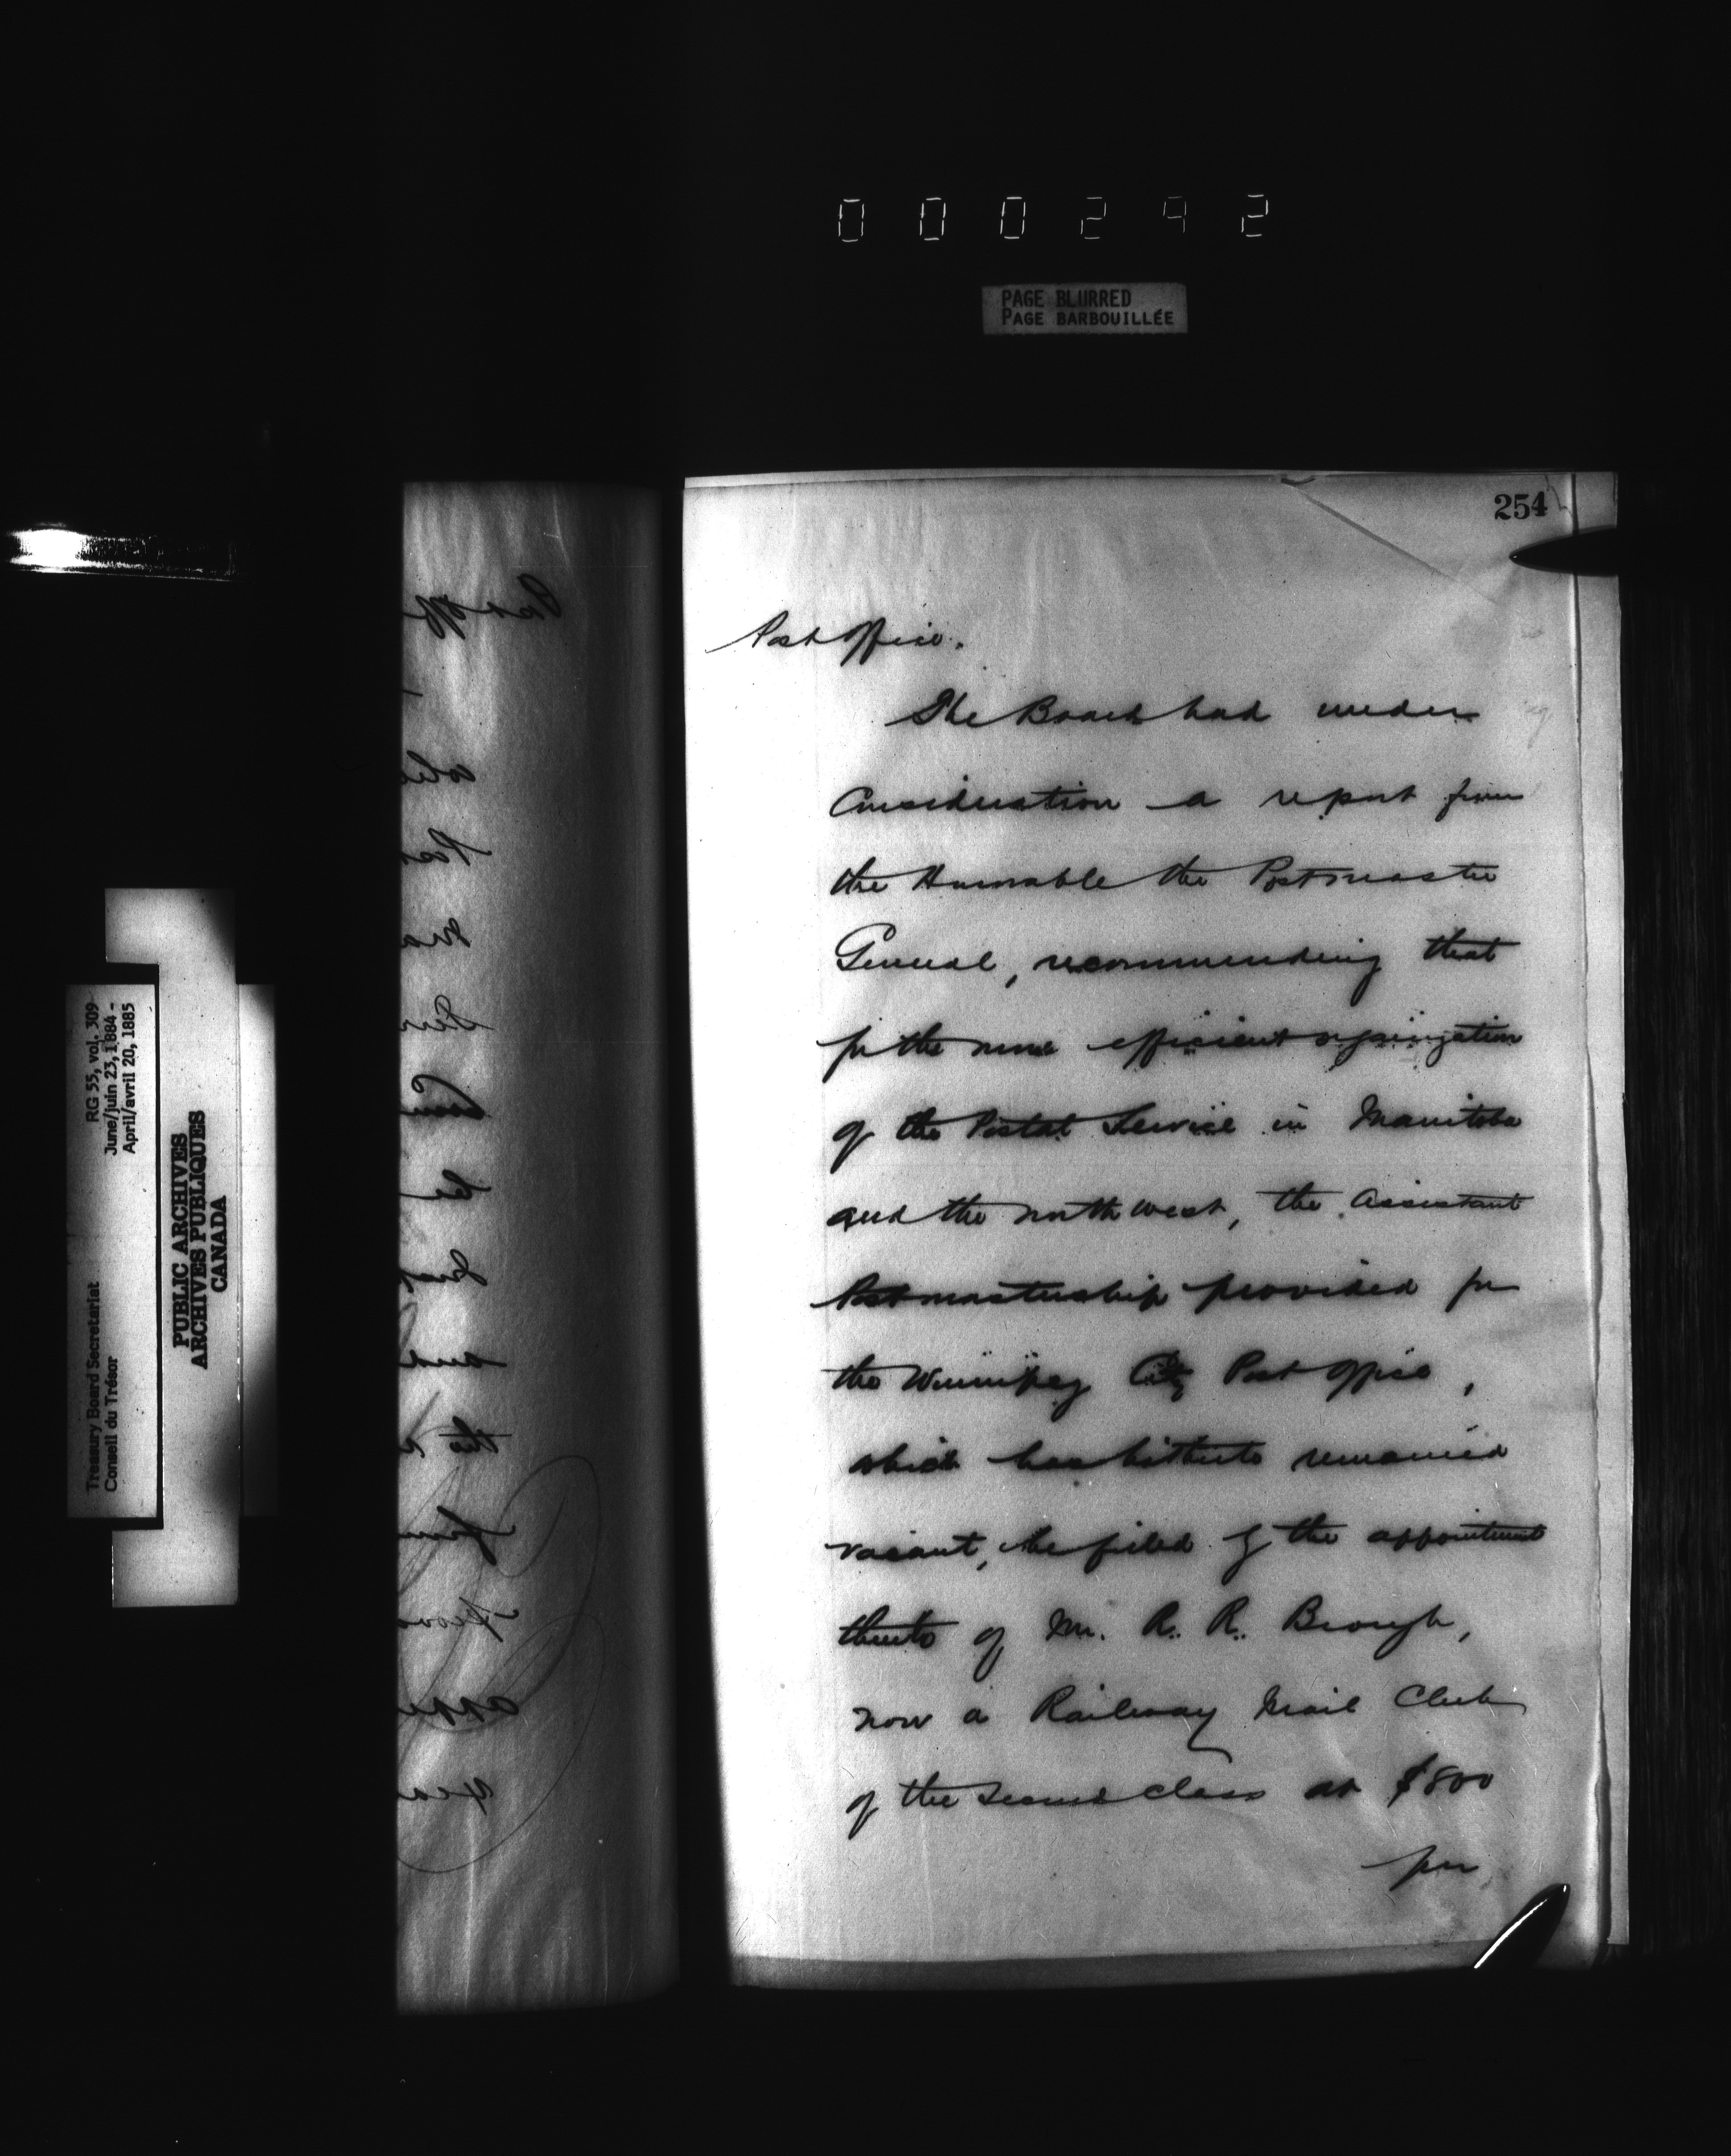 000292
PAGE BLURRED
PAGE BARBOUILLÉE
RG 55, vol. 309
June/juin 23, 1884 -
April/avril 20, 1885
Treasury Board Secretariat
Conseil du Trésor
PUBLIC ARCHIVES
ARCHIVES PUBLIQUES
CANADA
254
Post Office.
The Board had under
Consideration a report from
the Honorable the Postmaster
General, recommending that
for the more efficient organization
of the Postal Service in Manitoba
and the North West, the Assistant
Postmastership provided for
the Winnipeg City Post Office,
which has hitherto remained
vacant, be filled by the appointment
thereto of Mr. R. R. Brough,
now a Railway Mail Clerk
of the Second Class at $800
per